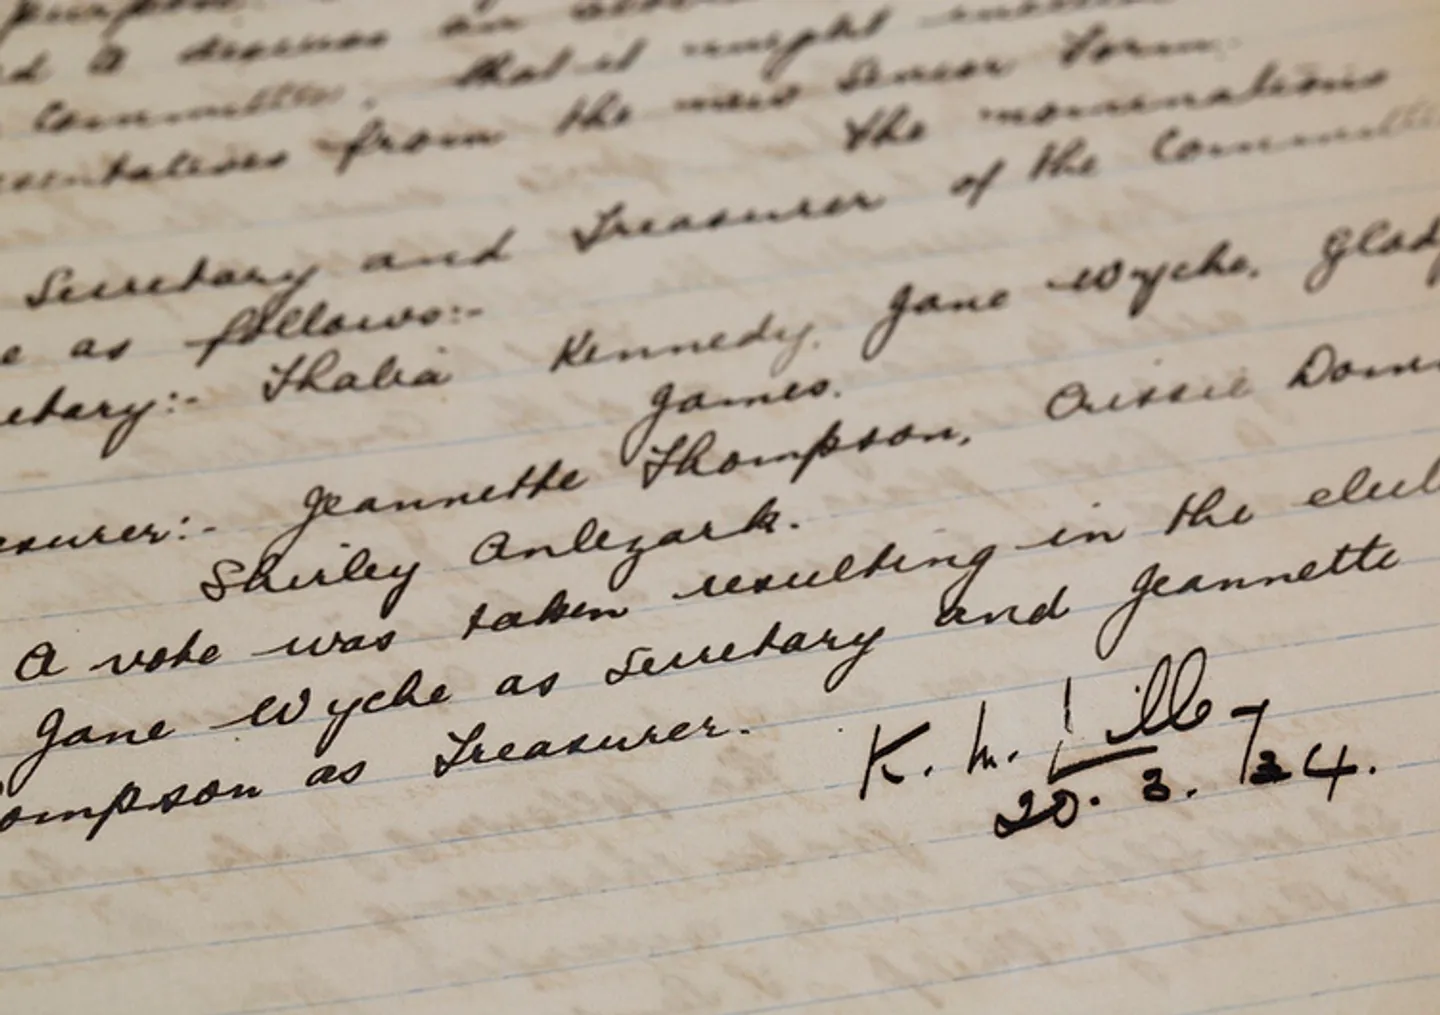 purpose
d a discuss on
Committee, that it might
sentatives from the new Senior Form.
The nominations
Secretary and Treasurer of the Committe
e as follows:-
etary:- Thalia Kennedy, Jane Wyche, Glad
James.
surer:- Jeannette Thompson, Cissie Dom
Shirley Anlezark.
A vote was taken resulting in the elec
Jane Wyche as Secretary and Jeannette
ompson as Treasurer.
K. M.
20. 3. /34.